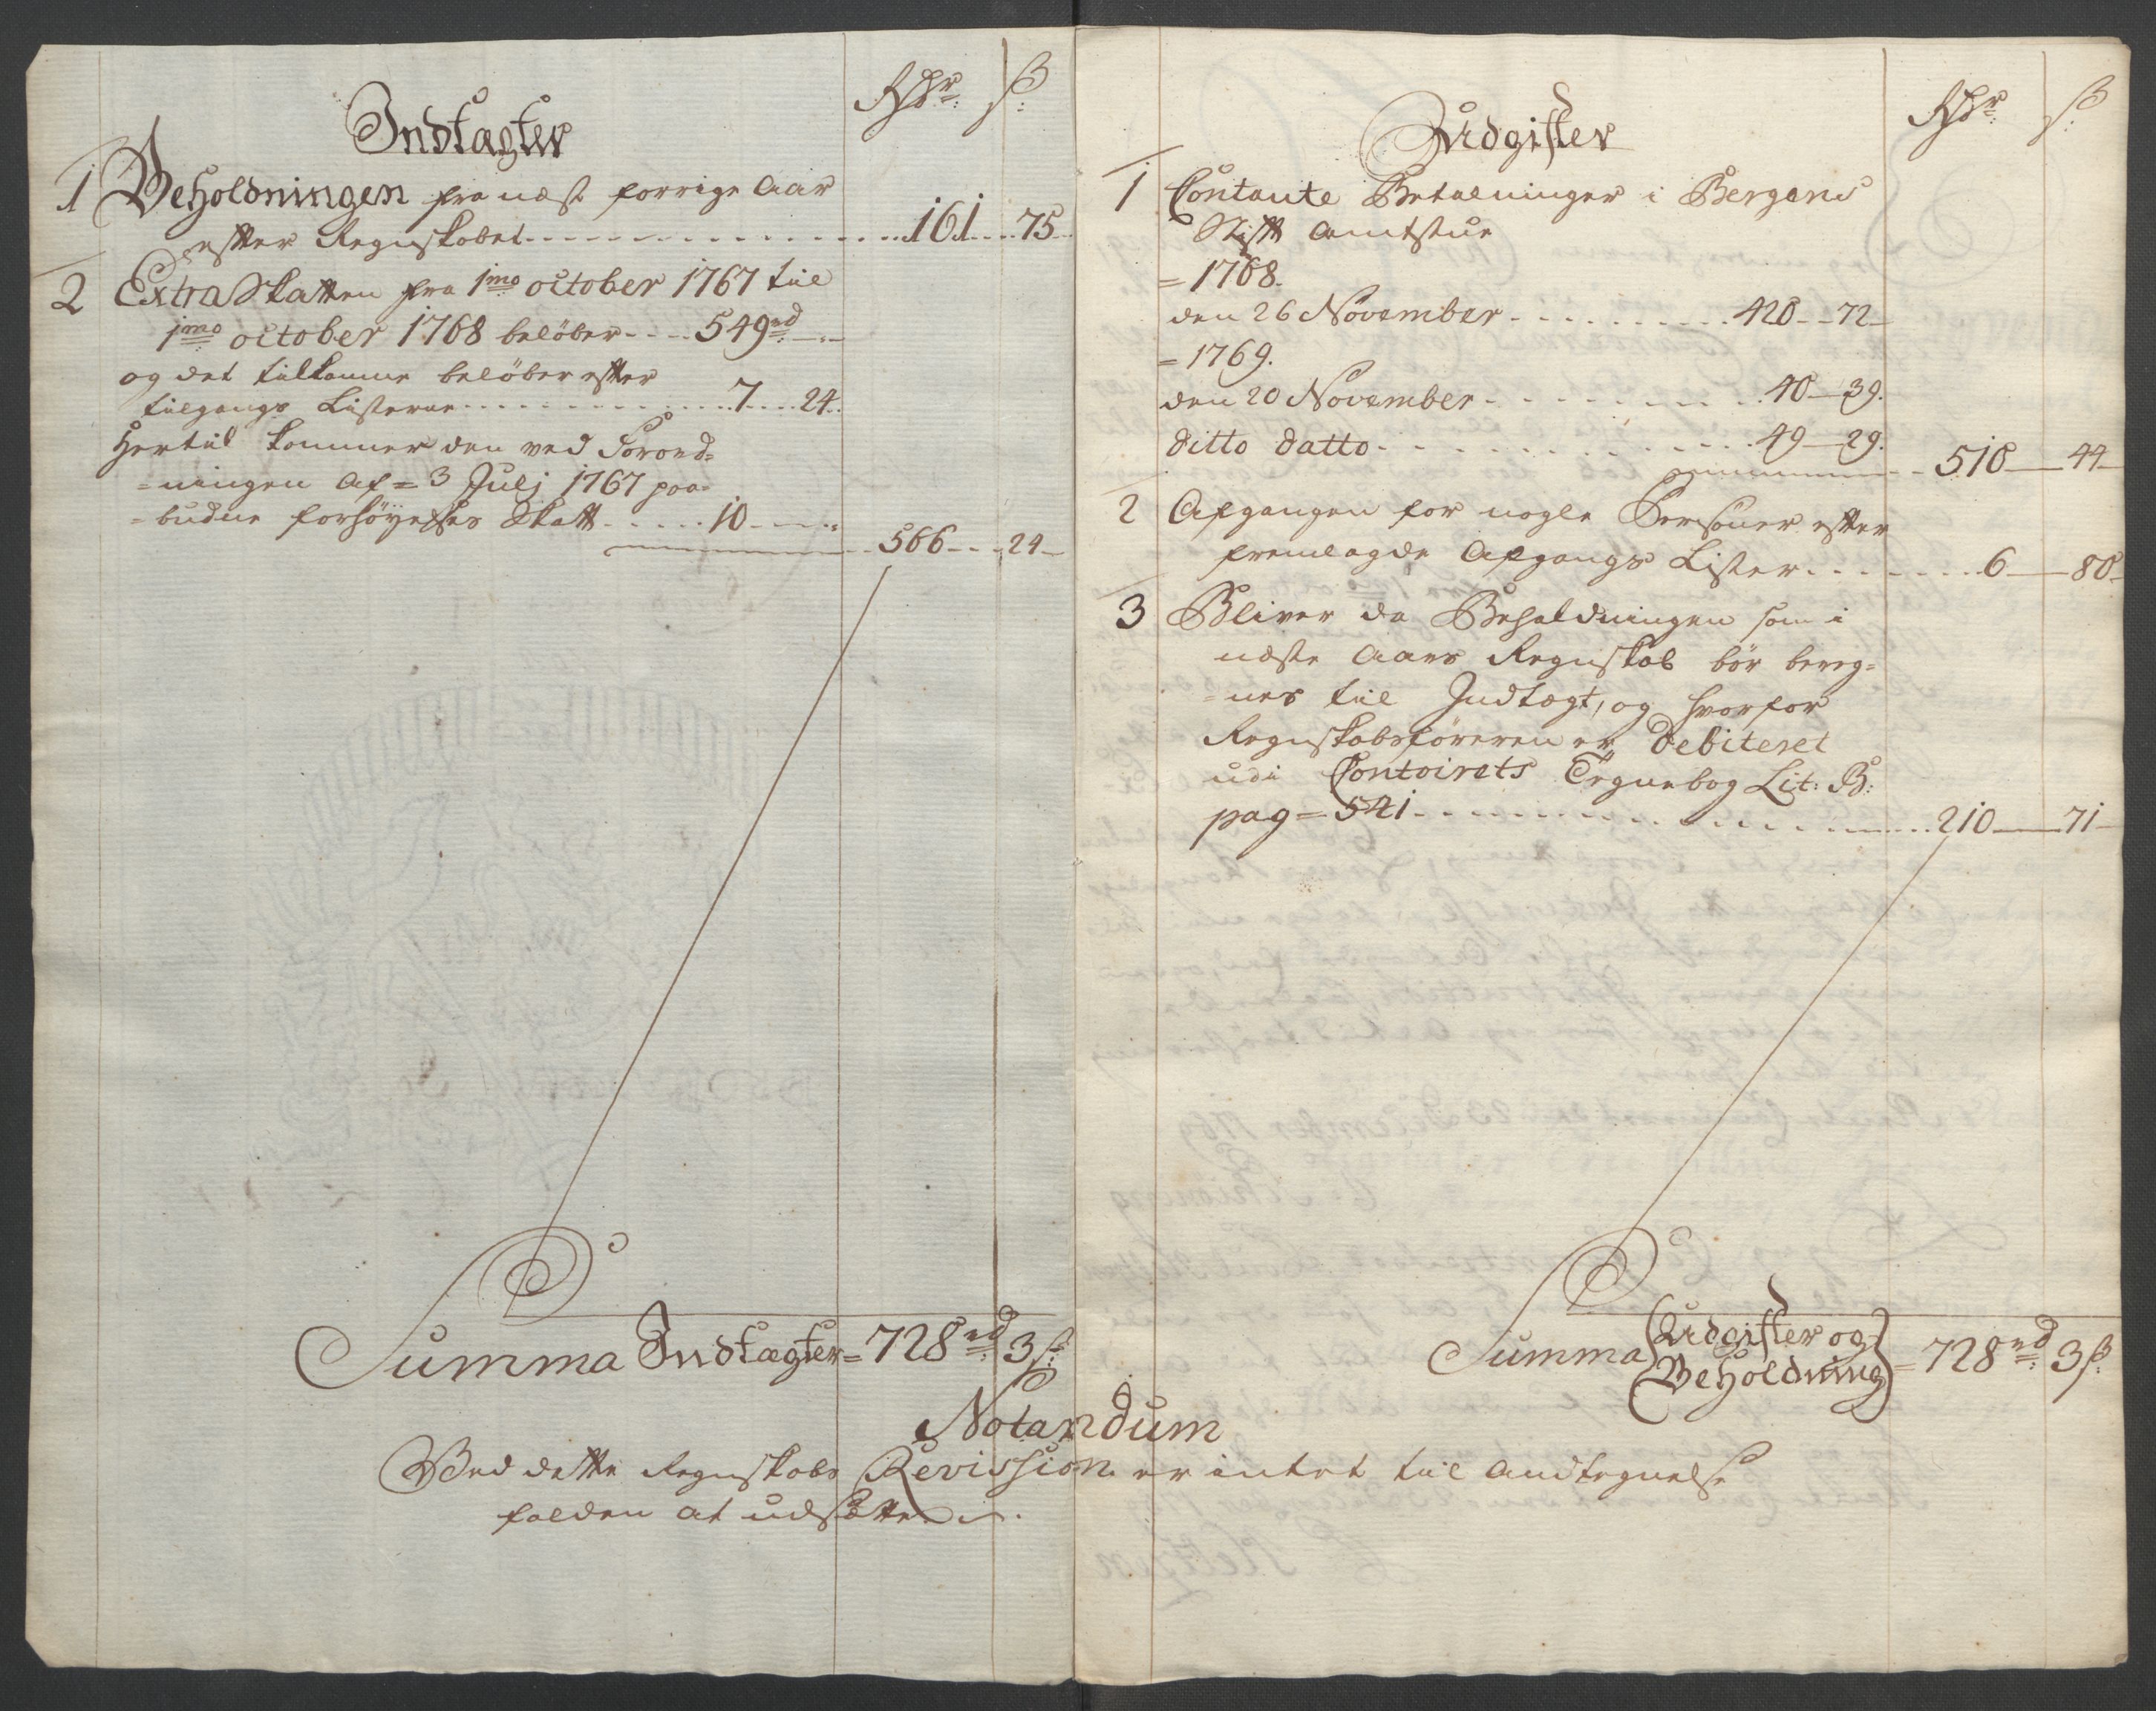 Rdr: ß:
Indtægter
1 Beholdningen fra næst forrige Aar
efter Regnskabet 161 75
2 Extra Skatten fra 1mo october 1767 til
1mo october 1768 beløber 549rd
og det tilkomne beløber efter
tilgangs Listerne 7 24
Hertil kommer den ved Forord=
=ningen Af = 3 Julj 1767 paa=
=budne forhöyelses Skatt 10
566 24
Summa Indtægter = 728rd 3ß:
Rdr: ß:
Udgifter
1 Contante Betalninger i Bergens
Stift Amtstue
= 1768.
den 26 November 428 72
= 1769.
den 20 November 40 39.
ditto datto 49 29.
518 44
2 Afgangen for nogle Personer efter
fremlagde Afgangs Lister 6 80
3 Bliver da Beholdningen som i
næste Aars Regnskab bör bereg=
=nes til Indtægt, og hvorfor
Regnskabsföreren er debiteret
udi Contoirets Tegnebog Lit: B:
pag = 541 210 71
Summa Udgifter og
Beholdning = 728rd 3ß:
Notandum
Ved dette Regnskabs Revission er intet til Andtegnelse
falden at udsætte